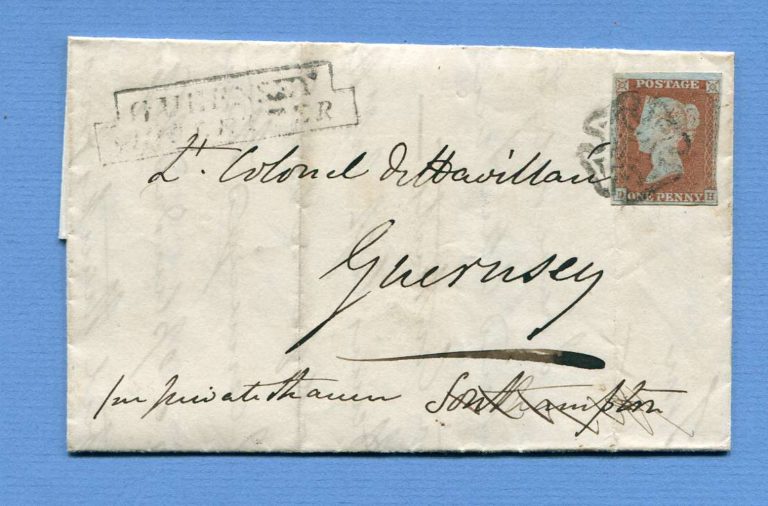 GUERNSEY
SHIP LETTER
POSTAGE
D ONE PENNY H
Lt. Colonel De Havilland
Guernsey
per private steamer Southampton